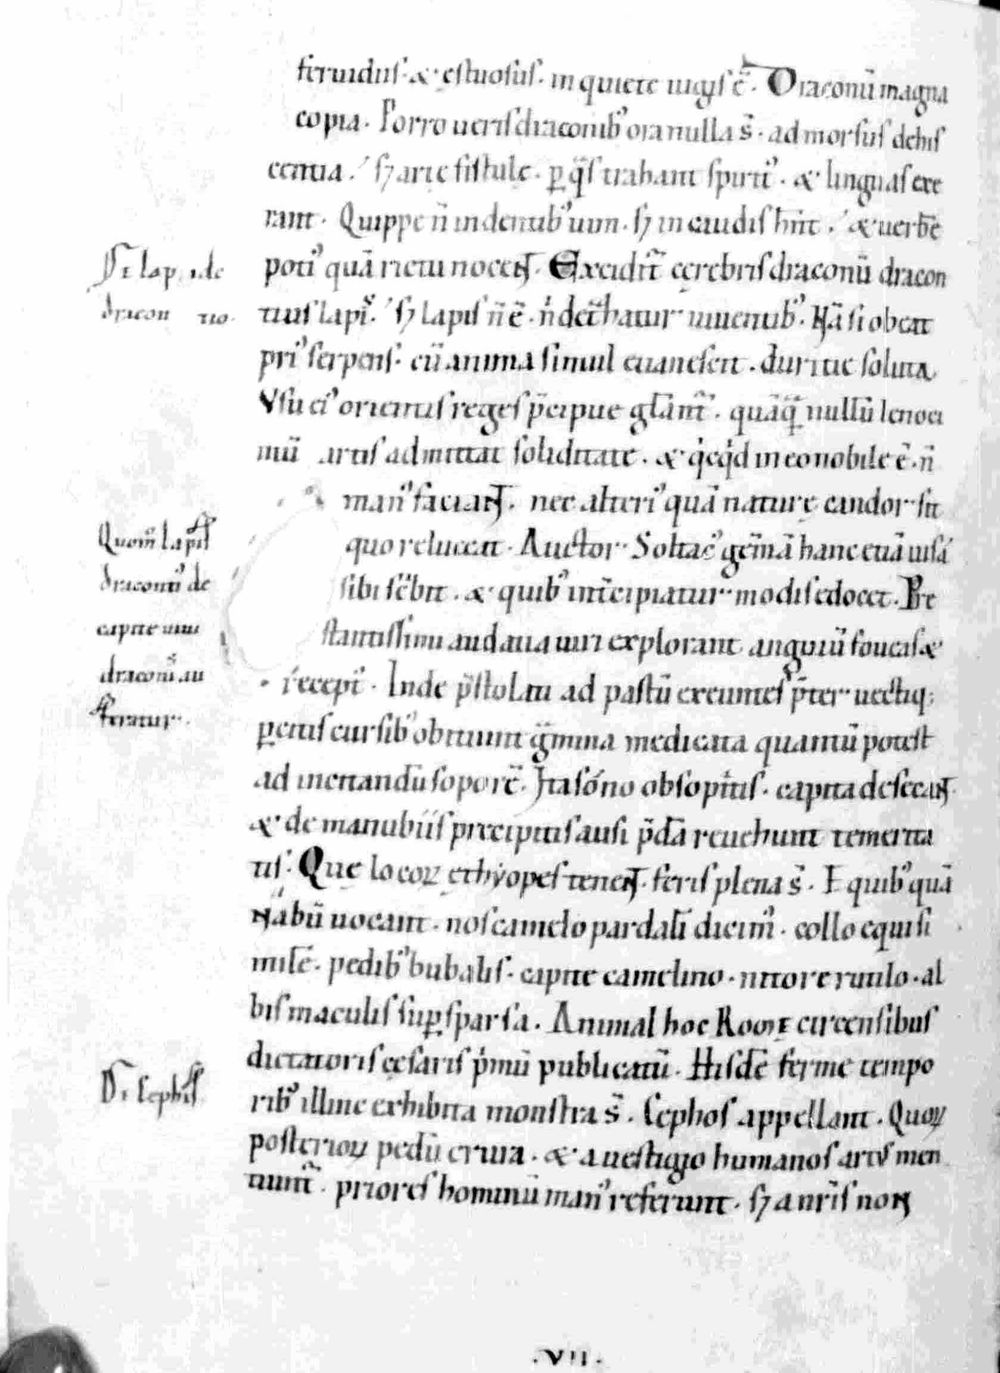 feruidus· & ęstuosus· in quiete iugis ē· Draconū magna
copia· Porro ueris draconib᾽ ora nulla s̄· ad morsus dehis
centia· sꝫ arte fistule· ꝑ q̄s trahant spirit᾽· & linguas exe
rant· Quippe n̄ in dentib᾽ uim· sꝫ in caudis hn̄t· & uerbe
De lapide
poti᾽ quā rictu nocent· Exciditᷣ cerebris draconū dracon
dracontio·
tius lapis· sꝫ lapis n̄ ē· n̄ detᷣhatur uiuentib᾽· Nā si obeat
pri᾽ serpens· cū anima simul euanescit· duritie soluta
Vsu ei᾽ orientis reges p̄cipue gl̄antᷣ· quāq̄ nullū lenoci
niū artis admittat soliditate· & qͥcqͥd in eo nobile ē· n̄
man᾽ faciant· nec alteri᾽ quā naturę candor sit
Quom̄ lapis
quo reluceat· Auctor Sotac᾽ gēmā hanc etiā uisā
draconti᾽ de
sibi scͥbit· & quib᾽ int̄cipiatur modis edocet· Pre
capite uiui
stantissimi audatia uiri explorant anguiū foueas &
draconis au
recept᾽· Inde p̄stolati ad pastū exeuntes p̄ter uectiq;
feratur·
ꝑ citis cursib᾽ obitiunt gͣmina medicata quantū potest
ad incitandū soporē· Ita sōno obsopitis· capita desecant
& de manubiis p̄cipitis ausi p̄dā reuehunt temerita
tis· Quę locoꝝ ęthyopes tenent· feris plena s̄· E quib᾽ quā
nabū uocant· nos camelo pardalī dicim᾽· collo equi si
mile· pedib᾽ bubalis· capite camelino· nitore rutilo· al
bis maculis suꝑsparsa· Animal hoc Romę circensibus
dictatoris cęsaris pͥmū publicatū· Hisdē ferme tempo
De cephis
rib᾽ illinc exhibita monstra s̄· Cephos appellant· Quoꝝ
posterioꝝ pedū crura· & a uestigio humanos art᾽ men
tiuntᷣ· priores hominū man᾽ referunt· sꝫ a nr̄is non
·VII·